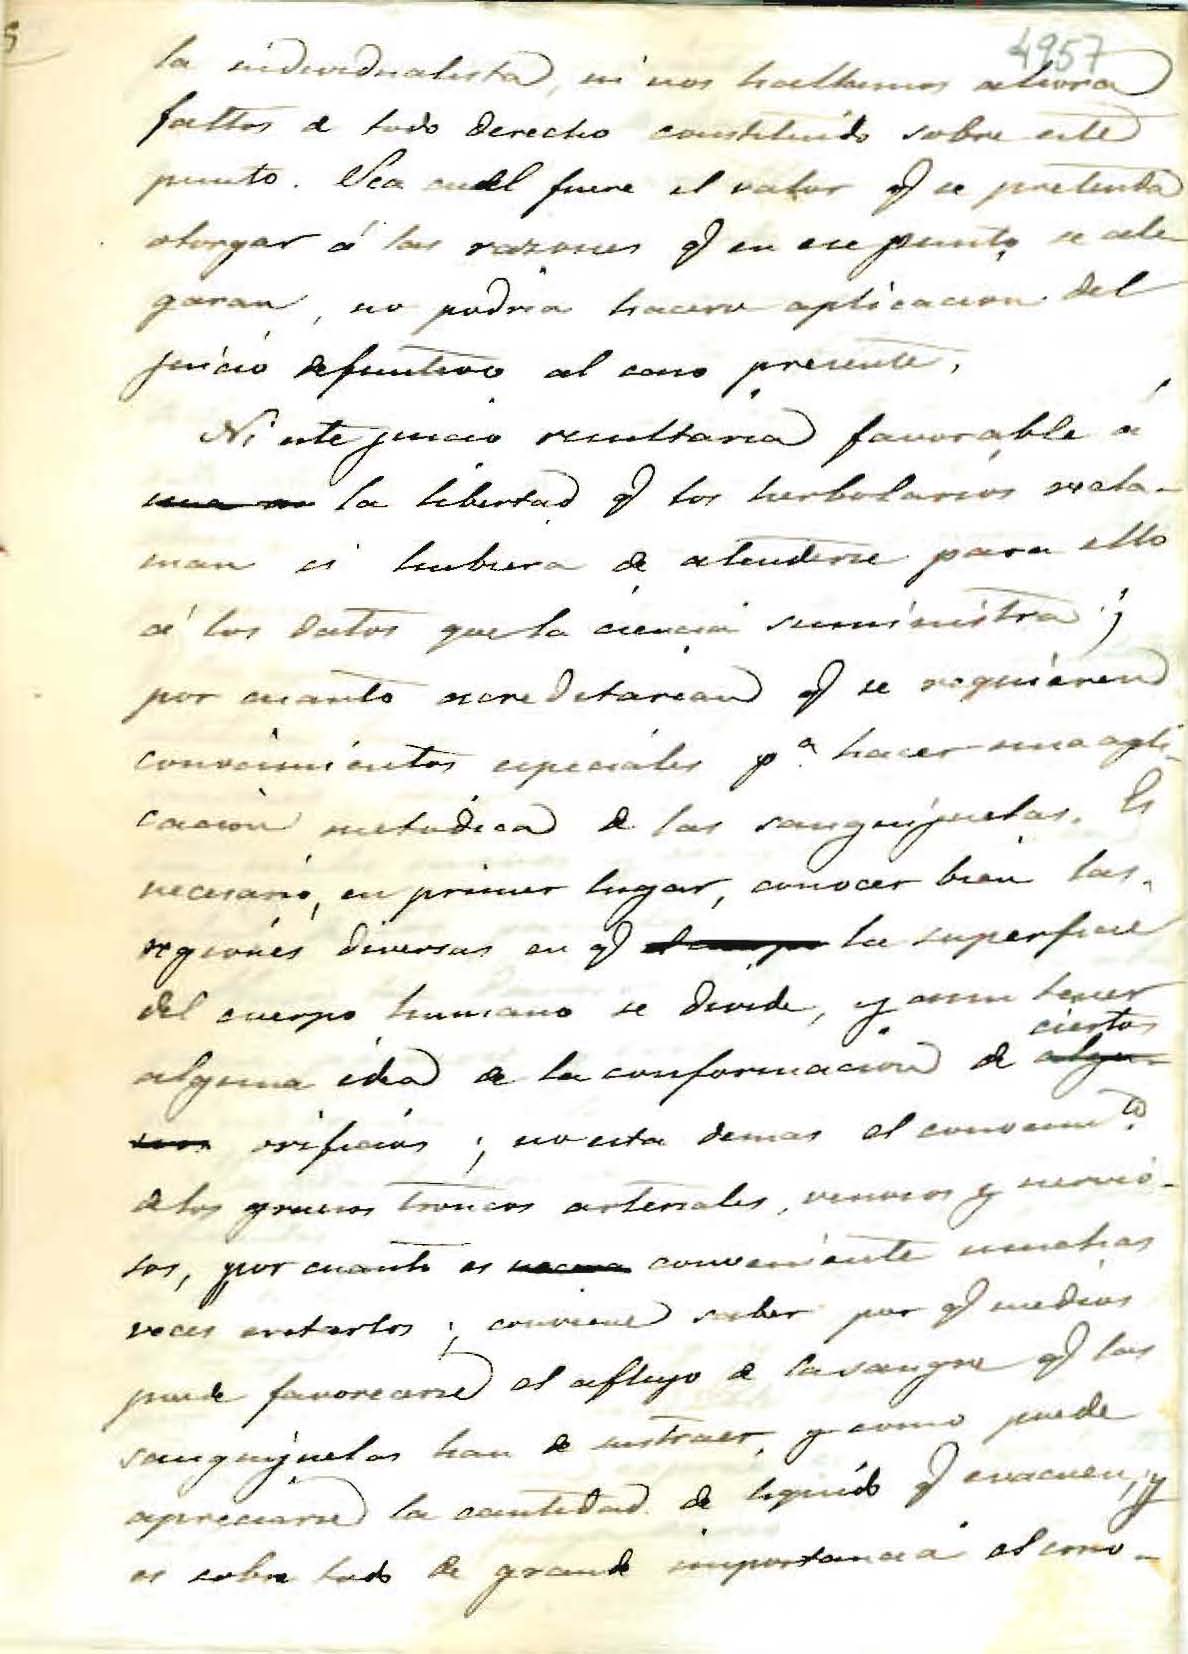 5
4957
la individualista, ni nos hallamos ahora
faltos de todo derecho constituido sobre este
punto. Sea cual fuere el valor q se pretenda
otorgar á las razones q en ese punto se ale-
garan, no podria hacerse aplicacion del
juicio definitivo al caso presente.
Ni este juicio resultaria favorable á
una la libertad q los herbolarios recla-
man si hubiera de atenderse para ello
á los datos que la ciencia suministra;
por cuanto acreditarian q se requieren
conocimientos especiales pª hacer una apli-
cacion metodica de las sanguijuelas. Es
necesario, en primer lugar, conocer bien las
regiones diversas en q el cuerpo la superficie
del cuerpo humano se divide, y aun tener
ciertos
alguna idea de la conformacion de algu-
nos orificios; no esta demas el conocimto
de los gruesos troncos arteriales, venosos y nervio-
sos, por cuanto es conveniente muchas
veces evitarlos; conviene saber por q medios
puede favorecerse el aflujo de la sangre q las
sanguijuelas han de sustraer, y como puede
apreciarse la cantidad de liquido q evacuen, y
es sobre todo de grande importancia el cono-